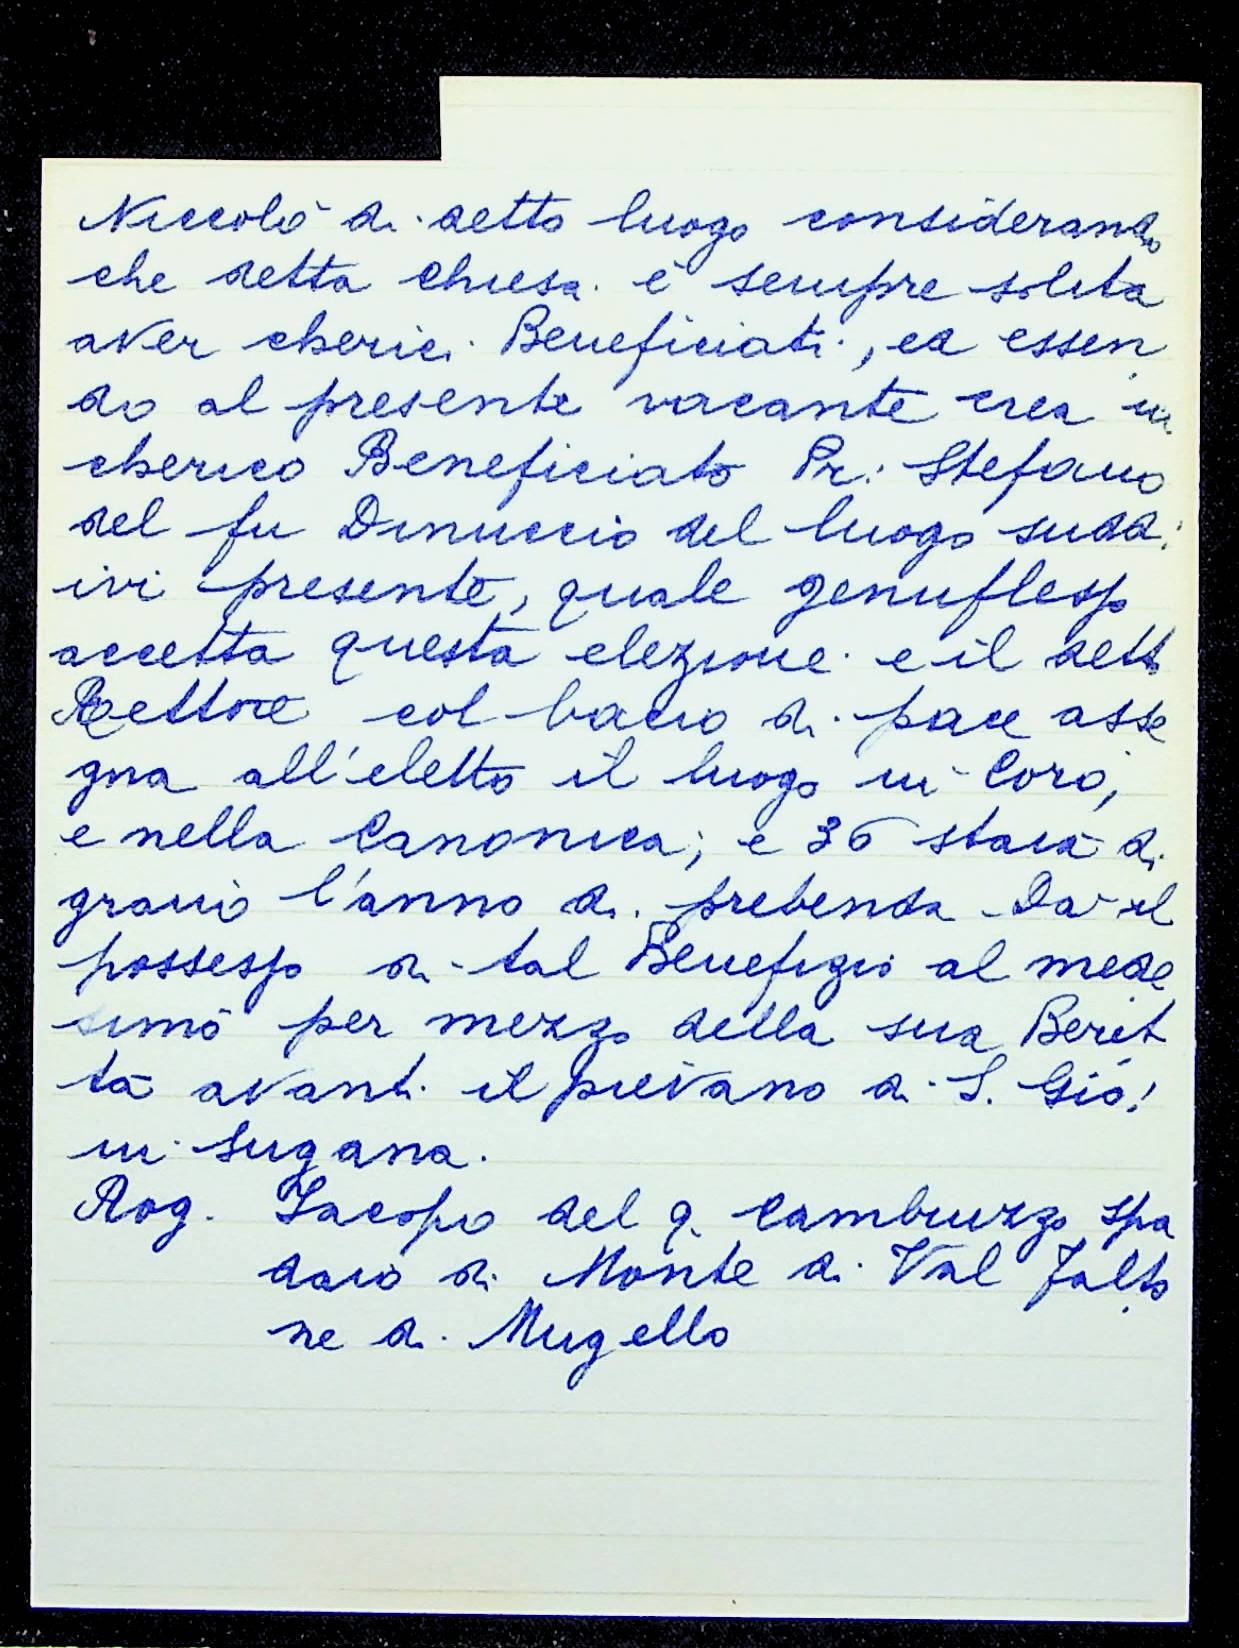 Niccolò di detto luogo considerando
che detta Chiesa è sempre solita
aver cherici Beneficiati, ed essen
do al presente vacante crea in
cherico Beneficiato Pr: Stefano
del fu Dinuccio del luogo sudd:
ivi presente, quale genuflesso
accetta questa elezione e il detto
Rettore col bacio di pace asse
gna all'eletto il luogo in Coro,
e nella Canonica; e 36 staia di
grano l'anno di prebenda. Da il
possesso di tal Benefizio al mede
simo per mezzo della sua Beret
ta avanti il pievano di S. Gio:
in Sugana.
Rog. Iacopo del q. Cambiuzzo Spa
daio di Monte di Val Falto
ne di Mugello